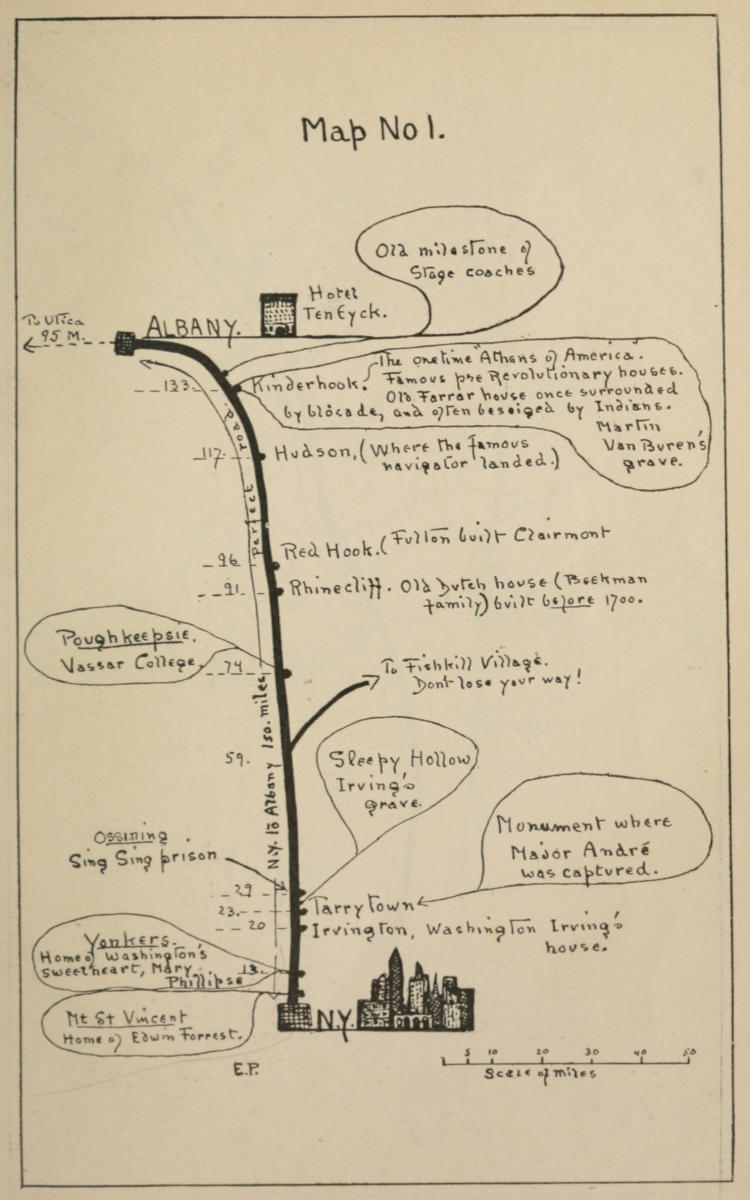 Map No 1.
Old milestone of
Stage coaches
Hotel
TenEyck.
To Utica
95 M.
ALBANY.
133.
Kinderhook.
The onetime "Athens of America".
Famous pre Revolutionary houses.
Old Farrar house once surrounded
by blocade, and often beseiged by Indians.
Martin
Van Buren's
grave.
perfect road
117.
Hudson, (Where the famous
navigator landed.)
96
Red Hook. (Fulton built Clairmont
91.
Rhinecliff. Old Dutch house (Beekman
family) built before 1700.
Poughkeepsie.
Vassar College.
74
To Fishkill Village.
Don't lose your way!
59.
N.Y. to Albany 150. miles
Sleepy Hollow
Irving's
grave.
Monument where
Major André
was captured.
Ossining
Sing Sing prison
29
23.
Tarrytown
20
Irvington, Washington Irving's
house.
Yonkers.
Home of Washington's
sweetheart, Mary
Phillipse
13.
Mt St Vincent
Home of Edwin Forrest.
N.Y.
E.P.
5 10 20 30 40 50
Scale of miles